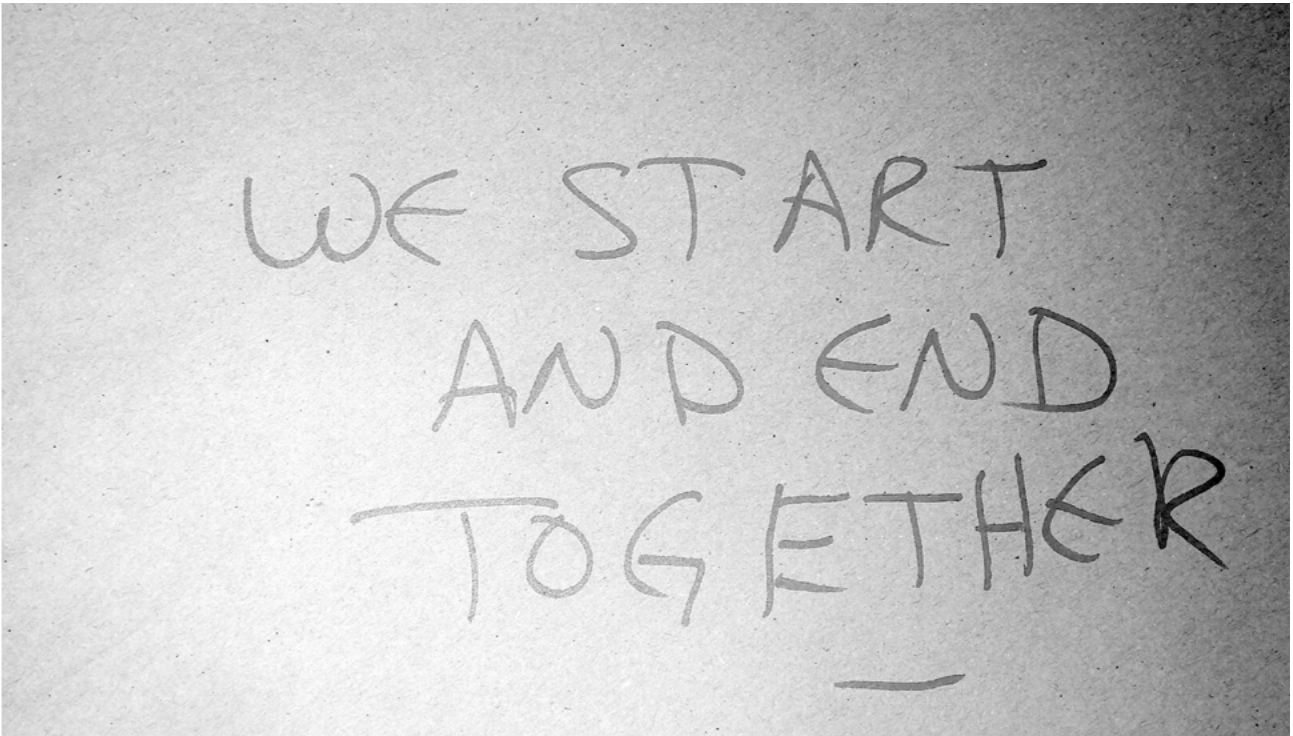 WE START
AND END
TOGETHER